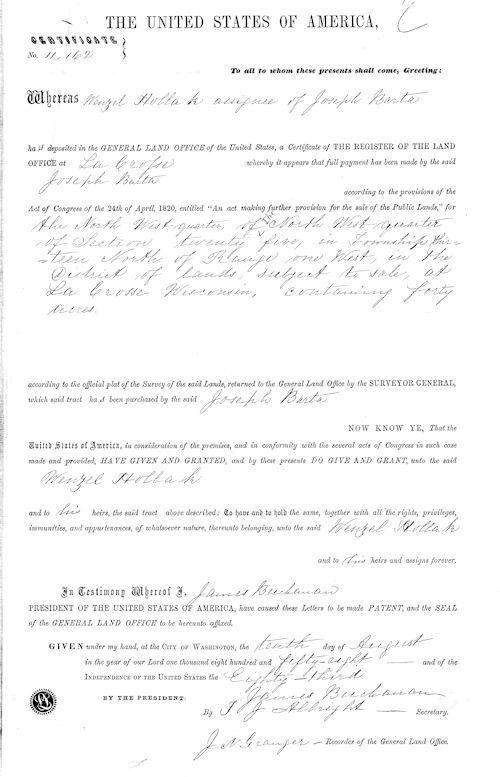 THE UNITED STATES OF AMERICA,
CERTIFICATE
No. 11,162
To all to whom these presents shall come, Greeting:
Whereas Wenzel Hollak assignee of Joseph Barta
ha s deposited in the GENERAL LAND OFFICE of the United States, a Certificate of THE REGISTER OF THE LAND
OFFICE at La Crosse whereby it appears that full payment has been made by the said
Joseph Barta
according to the provisions of the
Act of Congress of the 24th of April, 1820, entitled "An act making further provision for the sale of the Public Lands," for
the North West quarter, of the North West quarter
of Section twenty five, in Township thir-
-teen North of Range one West, in the
District of lands, subject to sale, at
La Crosse Wisconsin, containing forty
acres
according to the official plat of the Survey of the said Lands, returned to the General Land Office by the SURVEYOR GENERAL,
which said tract ha s been purchased by the said Joseph Barta
NOW KNOW YE, That the
United States of America, in consideration of the premises, and in conformity with the several acts of Congress in such case
made and provided, HAVE GIVEN AND GRANTED, and by these presents DO GIVE AND GRANT, unto the said
Wenzel Hollak
and to his heirs, the said tract above described: To have and to hold the same, together with all the rights, privileges,
immunities, and appurtenances, of whatsoever nature, thereunto belonging, unto the said Wenzel Hollak
and to his heirs and assigns forever.
In Testimony Whereof I, James Buchanan
PRESIDENT OF THE UNITED STATES OF AMERICA, have caused these Letters to be made PATENT, and the SEAL
of the GENERAL LAND OFFICE to be hereunto affixed.
GIVEN under my hand, at the CITY OF WASHINGTON, the tenth day of August
in the year of our Lord one thousand eight hundred and fifty-eight and of the
INDEPENDENCE OF THE UNITED STATES the Eighty-third
BY THE PRESIDENT: James Buchanan
By T J Albright Secretary.
J N Granger Recorder of the General Land Office.